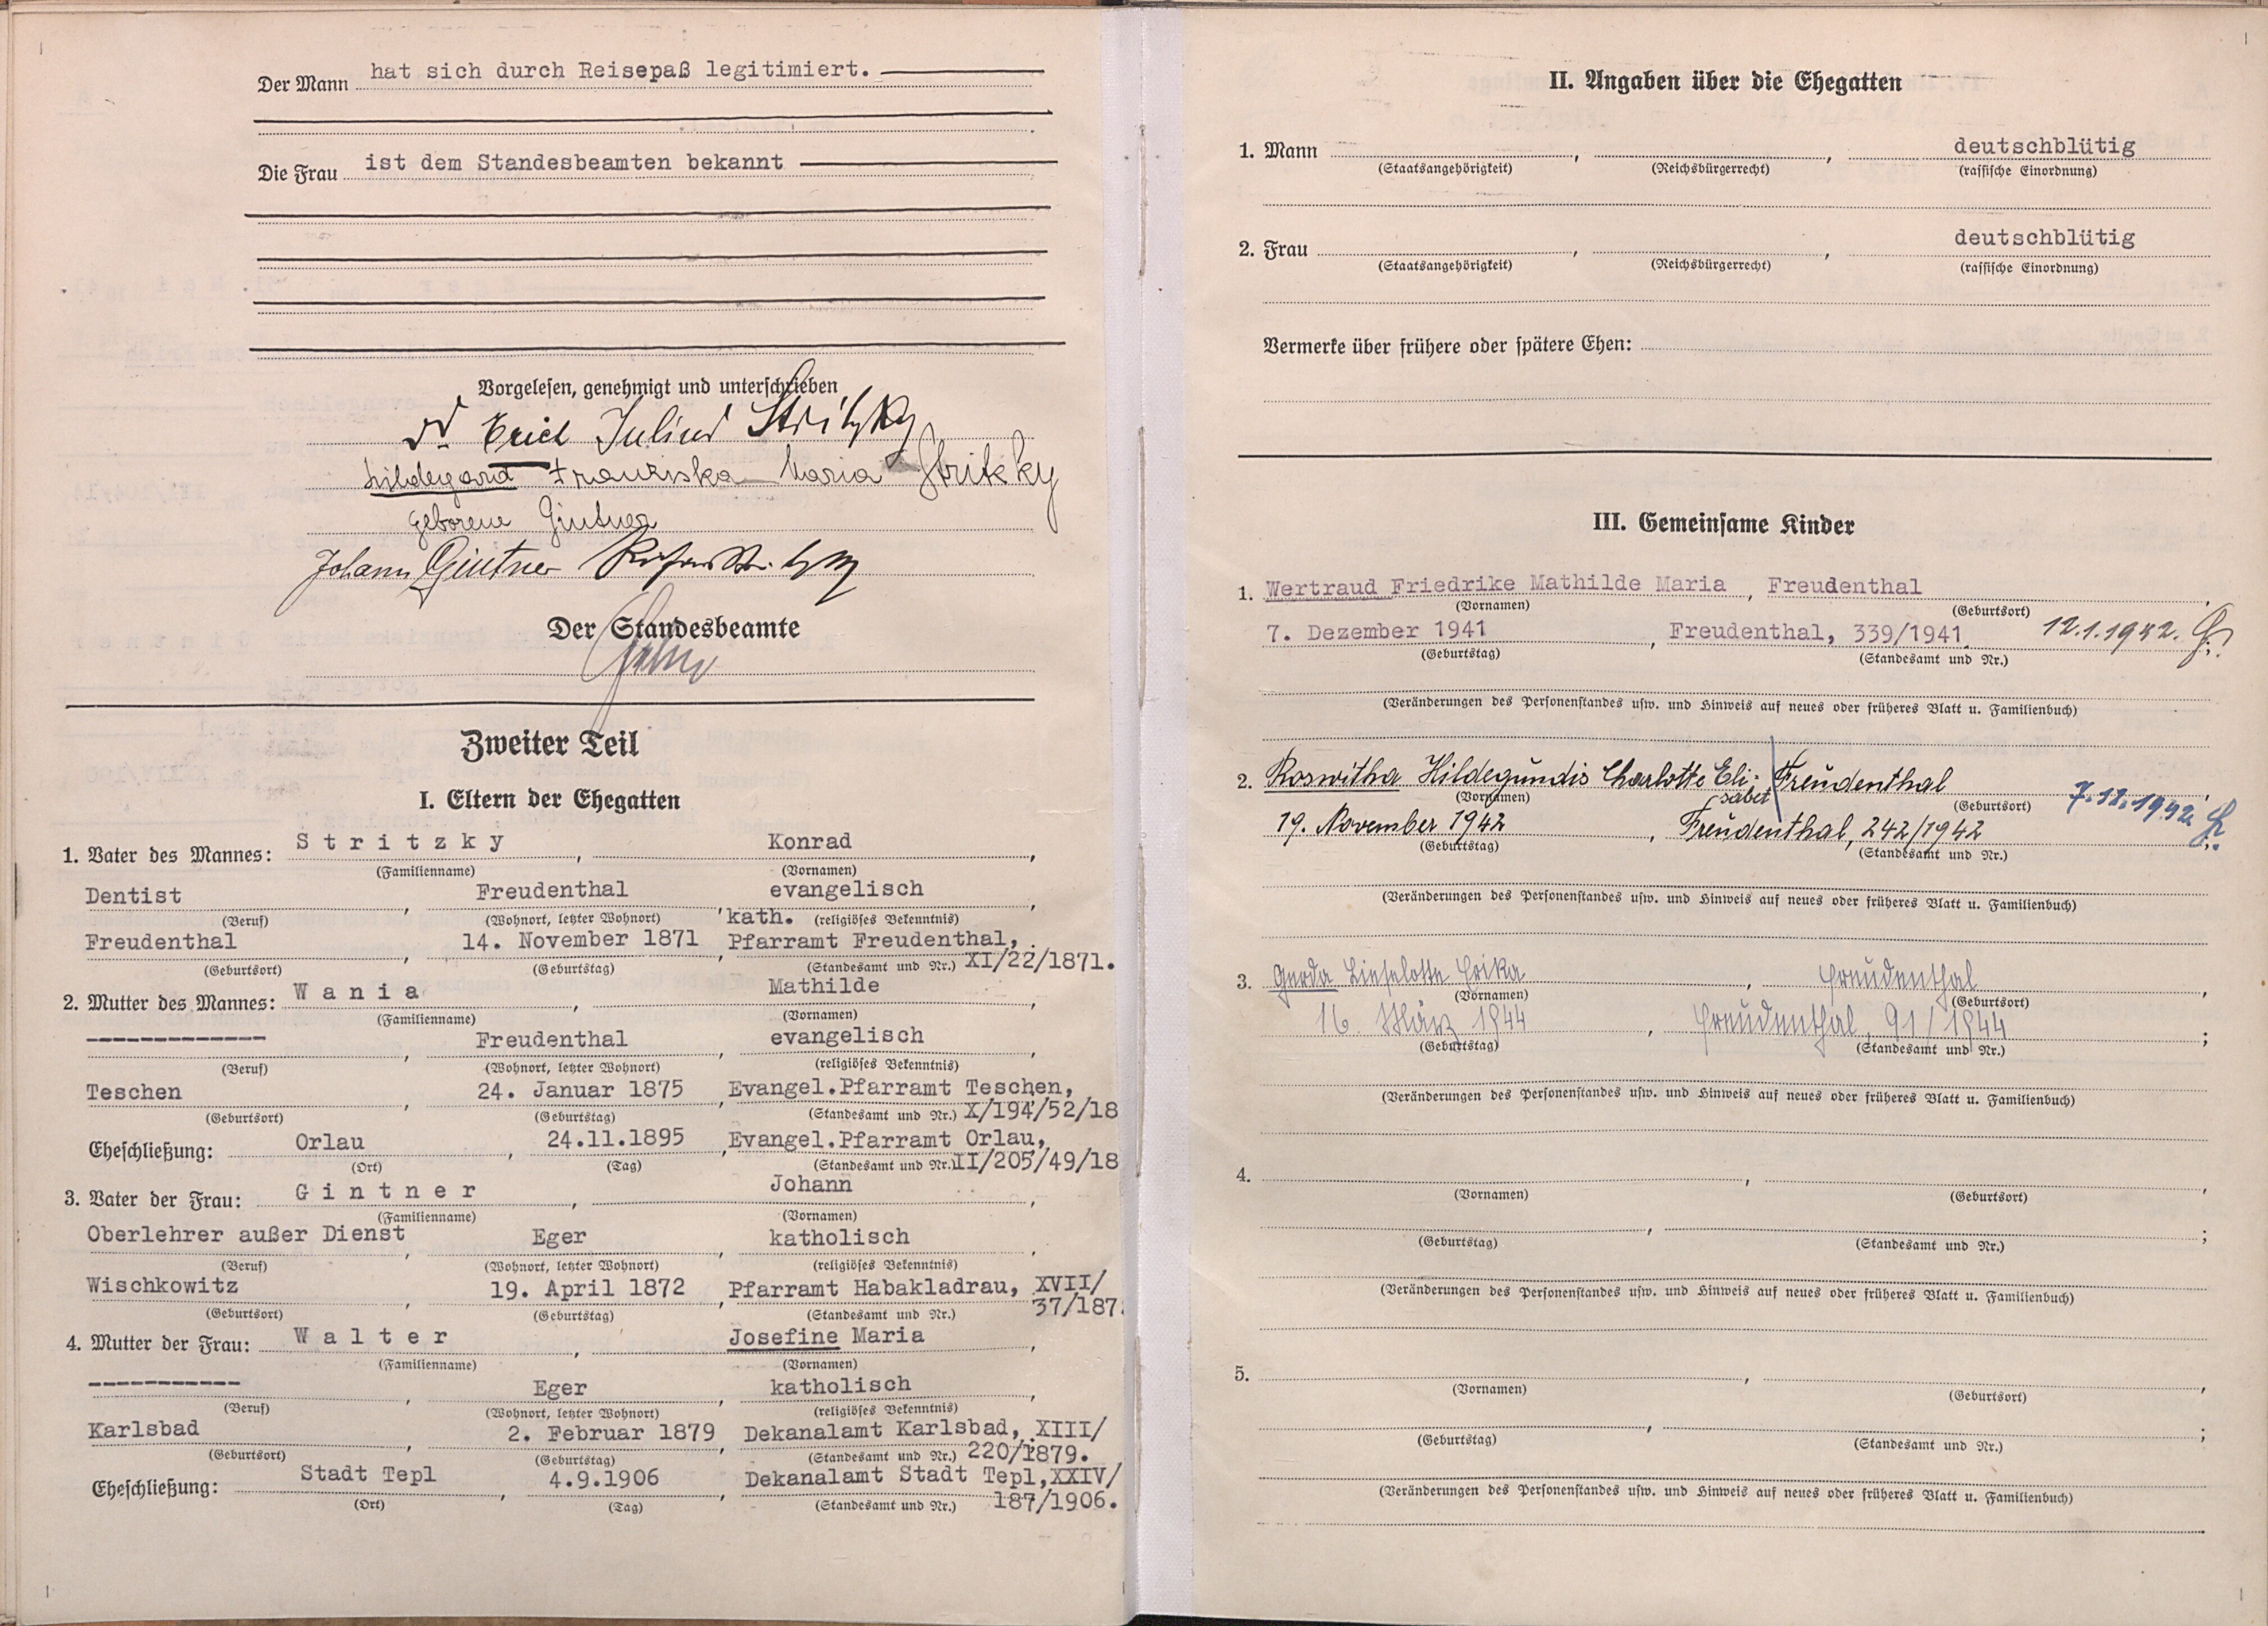 Der Mann hat sich durch Reisepaß legitimiert.
Die Frau ist dem Standesbeamten bekannt
Vorgelesen, genehmigt und unterschrieben
Dr. Erich Julius Stritzky
Hildegard Franziska Maria Stritzky
geborene Gintner
Johann Gintner
Der Standesbeamte
Zweiter Teil
I. Eltern der Ehegatten
1. Vater des Mannes: Stritzky, Konrad,
(Familienname) (Vornamen)
Dentist, Freudenthal, evangelisch,
(Beruf) (Wohnort, letzter Wohnort) kath. (religiöses Bekenntnis)
Freudenthal, 14. November 1871, Pfarramt Freudenthal,
(Geburtsort) (Geburtstag) (Standesamt und Nr.) XI/22/1871.
2. Mutter des Mannes: Wania, Mathilde,
(Familienname) (Vornamen)
-------------, Freudenthal, evangelisch,
(Beruf) (Wohnort, letzter Wohnort) (religiöses Bekenntnis)
Teschen, 24. Januar 1875, Evangel.Pfarramt Teschen,
(Geburtsort) (Geburtstag) (Standesamt und Nr.) X/194/52/18
Eheschließung: Orlau, 24.11.1895, Evangel.Pfarramt Orlau,
(Ort) (Tag) (Standesamt und Nr.) II/205/49/18
3. Vater der Frau: Gintner, Johann,
(Familienname) (Vornamen)
Oberlehrer außer Dienst, Eger, katholisch,
(Beruf) (Wohnort, letzter Wohnort) (religiöses Bekenntnis)
Wischkowitz, 19. April 1872, Pfarramt Habakladrau, XVII/
(Geburtsort) (Geburtstag) (Standesamt und Nr.) 37/187
4. Mutter der Frau: Walter, Josefine Maria,
(Familienname) (Vornamen)
-----------, Eger, katholisch,
(Beruf) (Wohnort, letzter Wohnort) (religiöses Bekenntnis)
Karlsbad, 2. Februar 1879, Dekanalamt Karlsbad, XIII/
(Geburtsort) (Geburtstag) (Standesamt und Nr.) 220/1879.
Eheschließung: Stadt Tepl, 4.9.1906, Dekanalamt Stadt Tepl,XXIV/
(Ort) (Tag) (Standesamt und Nr.) 187/1906.
II. Angaben über die Ehegatten
1. Mann , , deutschblütig
(Staatsangehörigkeit) (Reichsbürgerrecht) (rassische Einordnung)
2. Frau , , deutschblütig
(Staatsangehörigkeit) (Reichsbürgerrecht) (rassische Einordnung)
Vermerke über frühere oder spätere Ehen:
III. Gemeinsame Kinder
1. Wertraud Friedrike Mathilde Maria, Freudenthal,
(Vornamen) (Geburtsort)
7. Dezember 1941, Freudenthal, 339/1941. 12.1.1942.
(Geburtstag) (Standesamt und Nr.)
(Veränderungen des Personenstandes usw. und Hinweis auf neues oder früheres Blatt u. Familienbuch)
2. Roswitha Hildegundis Charlotte Eli- Freudenthal
(Vornamen) sabet (Geburtsort) 7.12.1942
19. November 1942, Freudenthal, 242/1942
(Geburtstag) (Standesamt und Nr.)
(Veränderungen des Personenstandes usw. und Hinweis auf neues oder früheres Blatt u. Familienbuch)
3. Gerda Lieselotte Erika, Freudenthal,
(Vornamen) (Geburtsort)
16. März 1944, Freudenthal, 91/1944;
(Geburtstag) (Standesamt und Nr.)
(Veränderungen des Personenstandes usw. und Hinweis auf neues oder früheres Blatt u. Familienbuch)
4. , ,
(Vornamen) (Geburtsort)
, ;
(Geburtstag) (Standesamt und Nr.)
(Veränderungen des Personenstandes usw. und Hinweis auf neues oder früheres Blatt u. Familienbuch)
5. , ,
(Vornamen) (Geburtsort)
, ;
(Geburtstag) (Standesamt und Nr.)
(Veränderungen des Personenstandes usw. und Hinweis auf neues oder früheres Blatt u. Familienbuch)